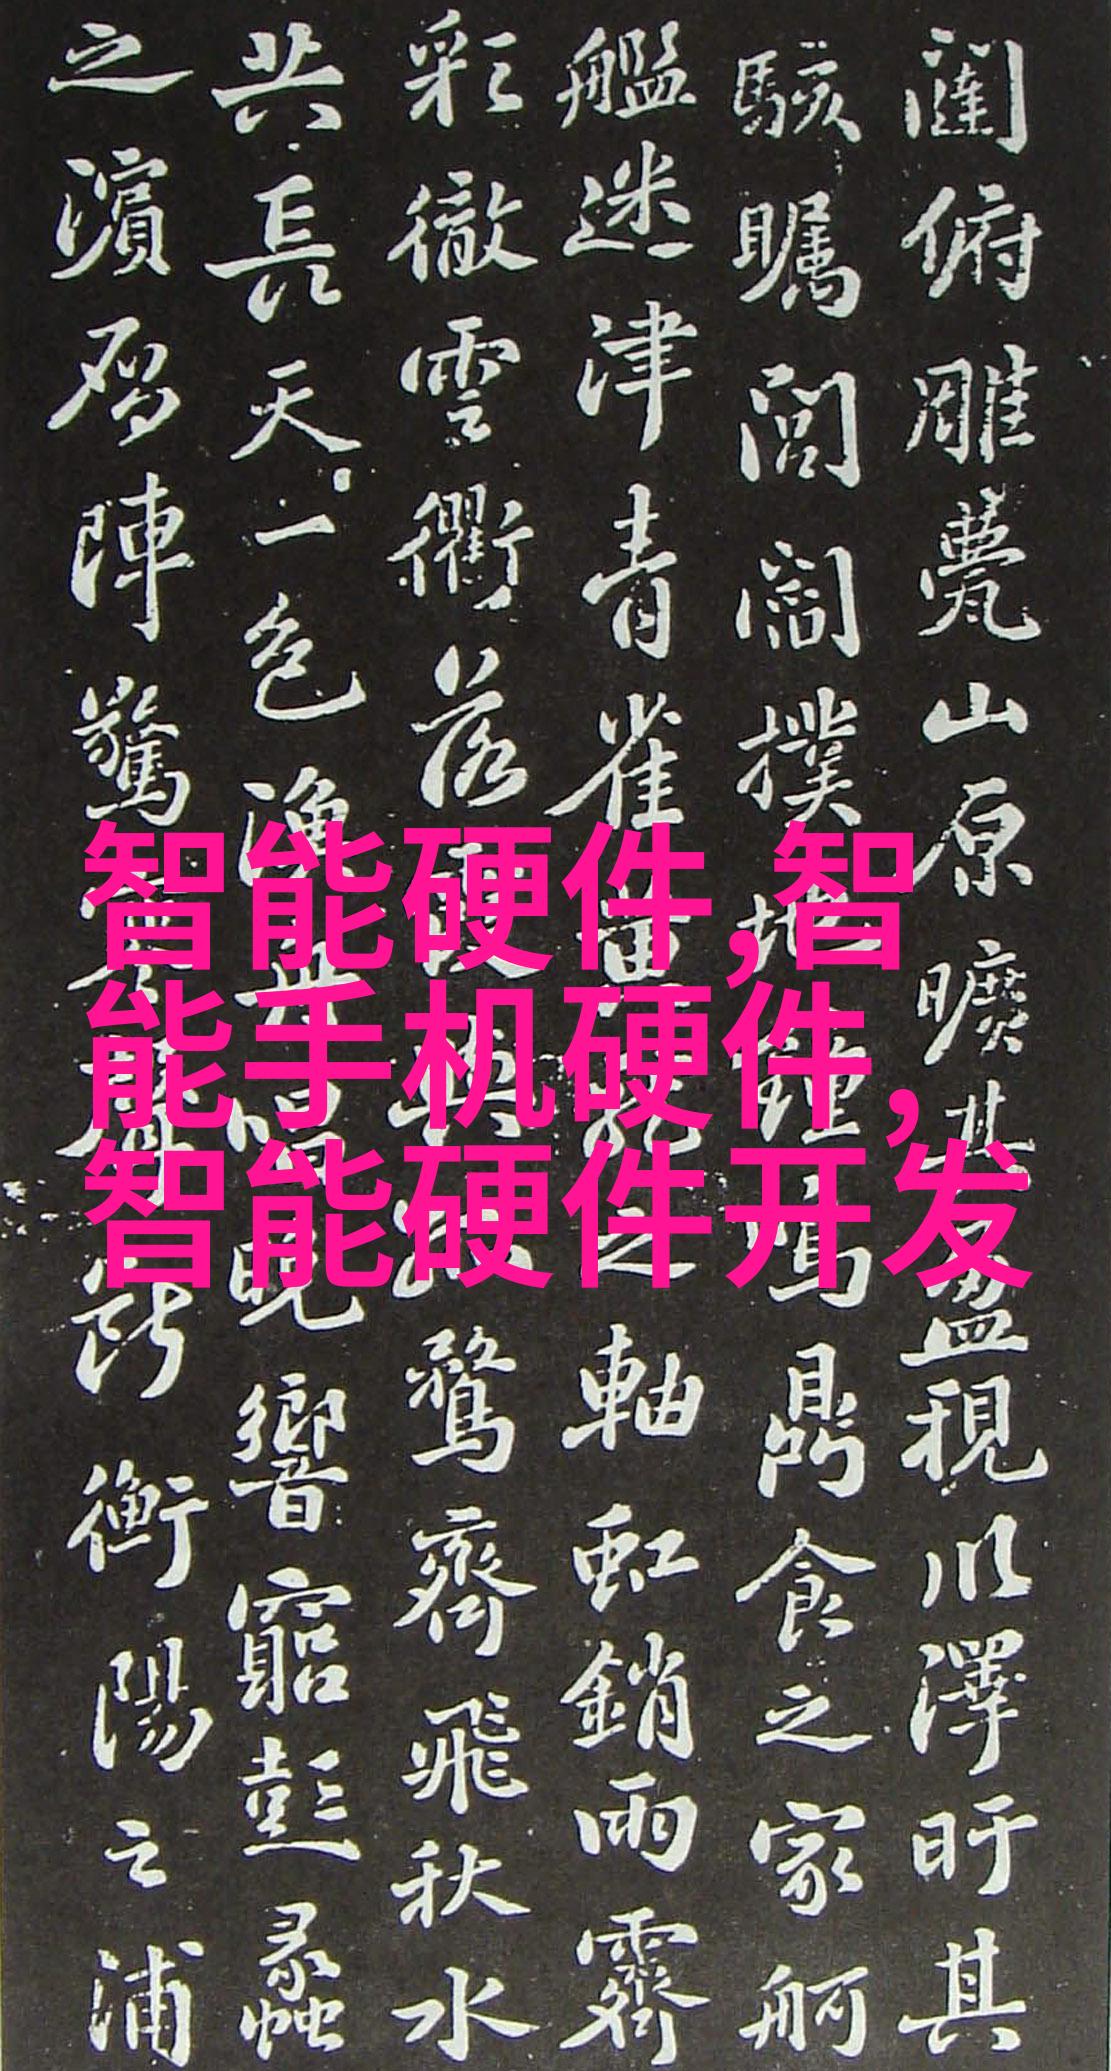 闥俯雕甍山原曠其盈視川澤盱其
駭矚閭閻撲地鐘鳴鼎食之家舸
艦迷津青雀黃龍之軸虹銷雨霽
彩徹雲衢落霞與孤鶩齊飛秋水
共長天一色漁舟唱晚響窮彭蠡
之濱雁陣驚寒聲斷衡陽之浦
智能硬件,智
能手机硬件,
智能硬件开发